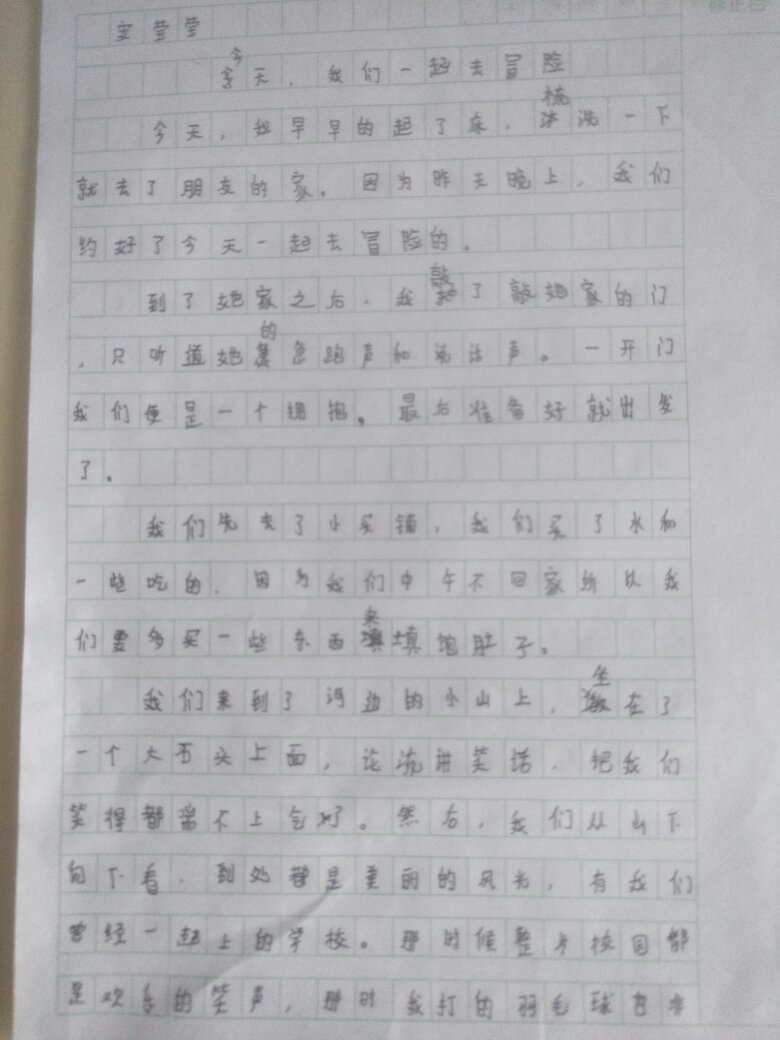 莹莹
今天，我们一起去冒险
今天，我早早的起了床，梳洗一下
就去了朋友的家。因为昨天晚上，我们
约好了今天一起去冒险的。
到了她家之后，我敲了敲她家的门
，只听道她的急急跑声和说话声。一开门
我们便是一个拥抱。最后准备好就出发
了。
我们先去了小买铺，我们买了水和
一些吃的，因为我们中午不回家所以我
们要多买一些东西来填饱肚子。
我们来到了河边的小山上，坐在了
一个大石头上面，论流讲笑话，把我们
笑得都喘不上气了。然后，我们从山下
向下看，到处都是美丽的风光，有我们
曾经一起上的学校。那时候整片校园都
是欢乐的笑声，那时我打的羽毛球